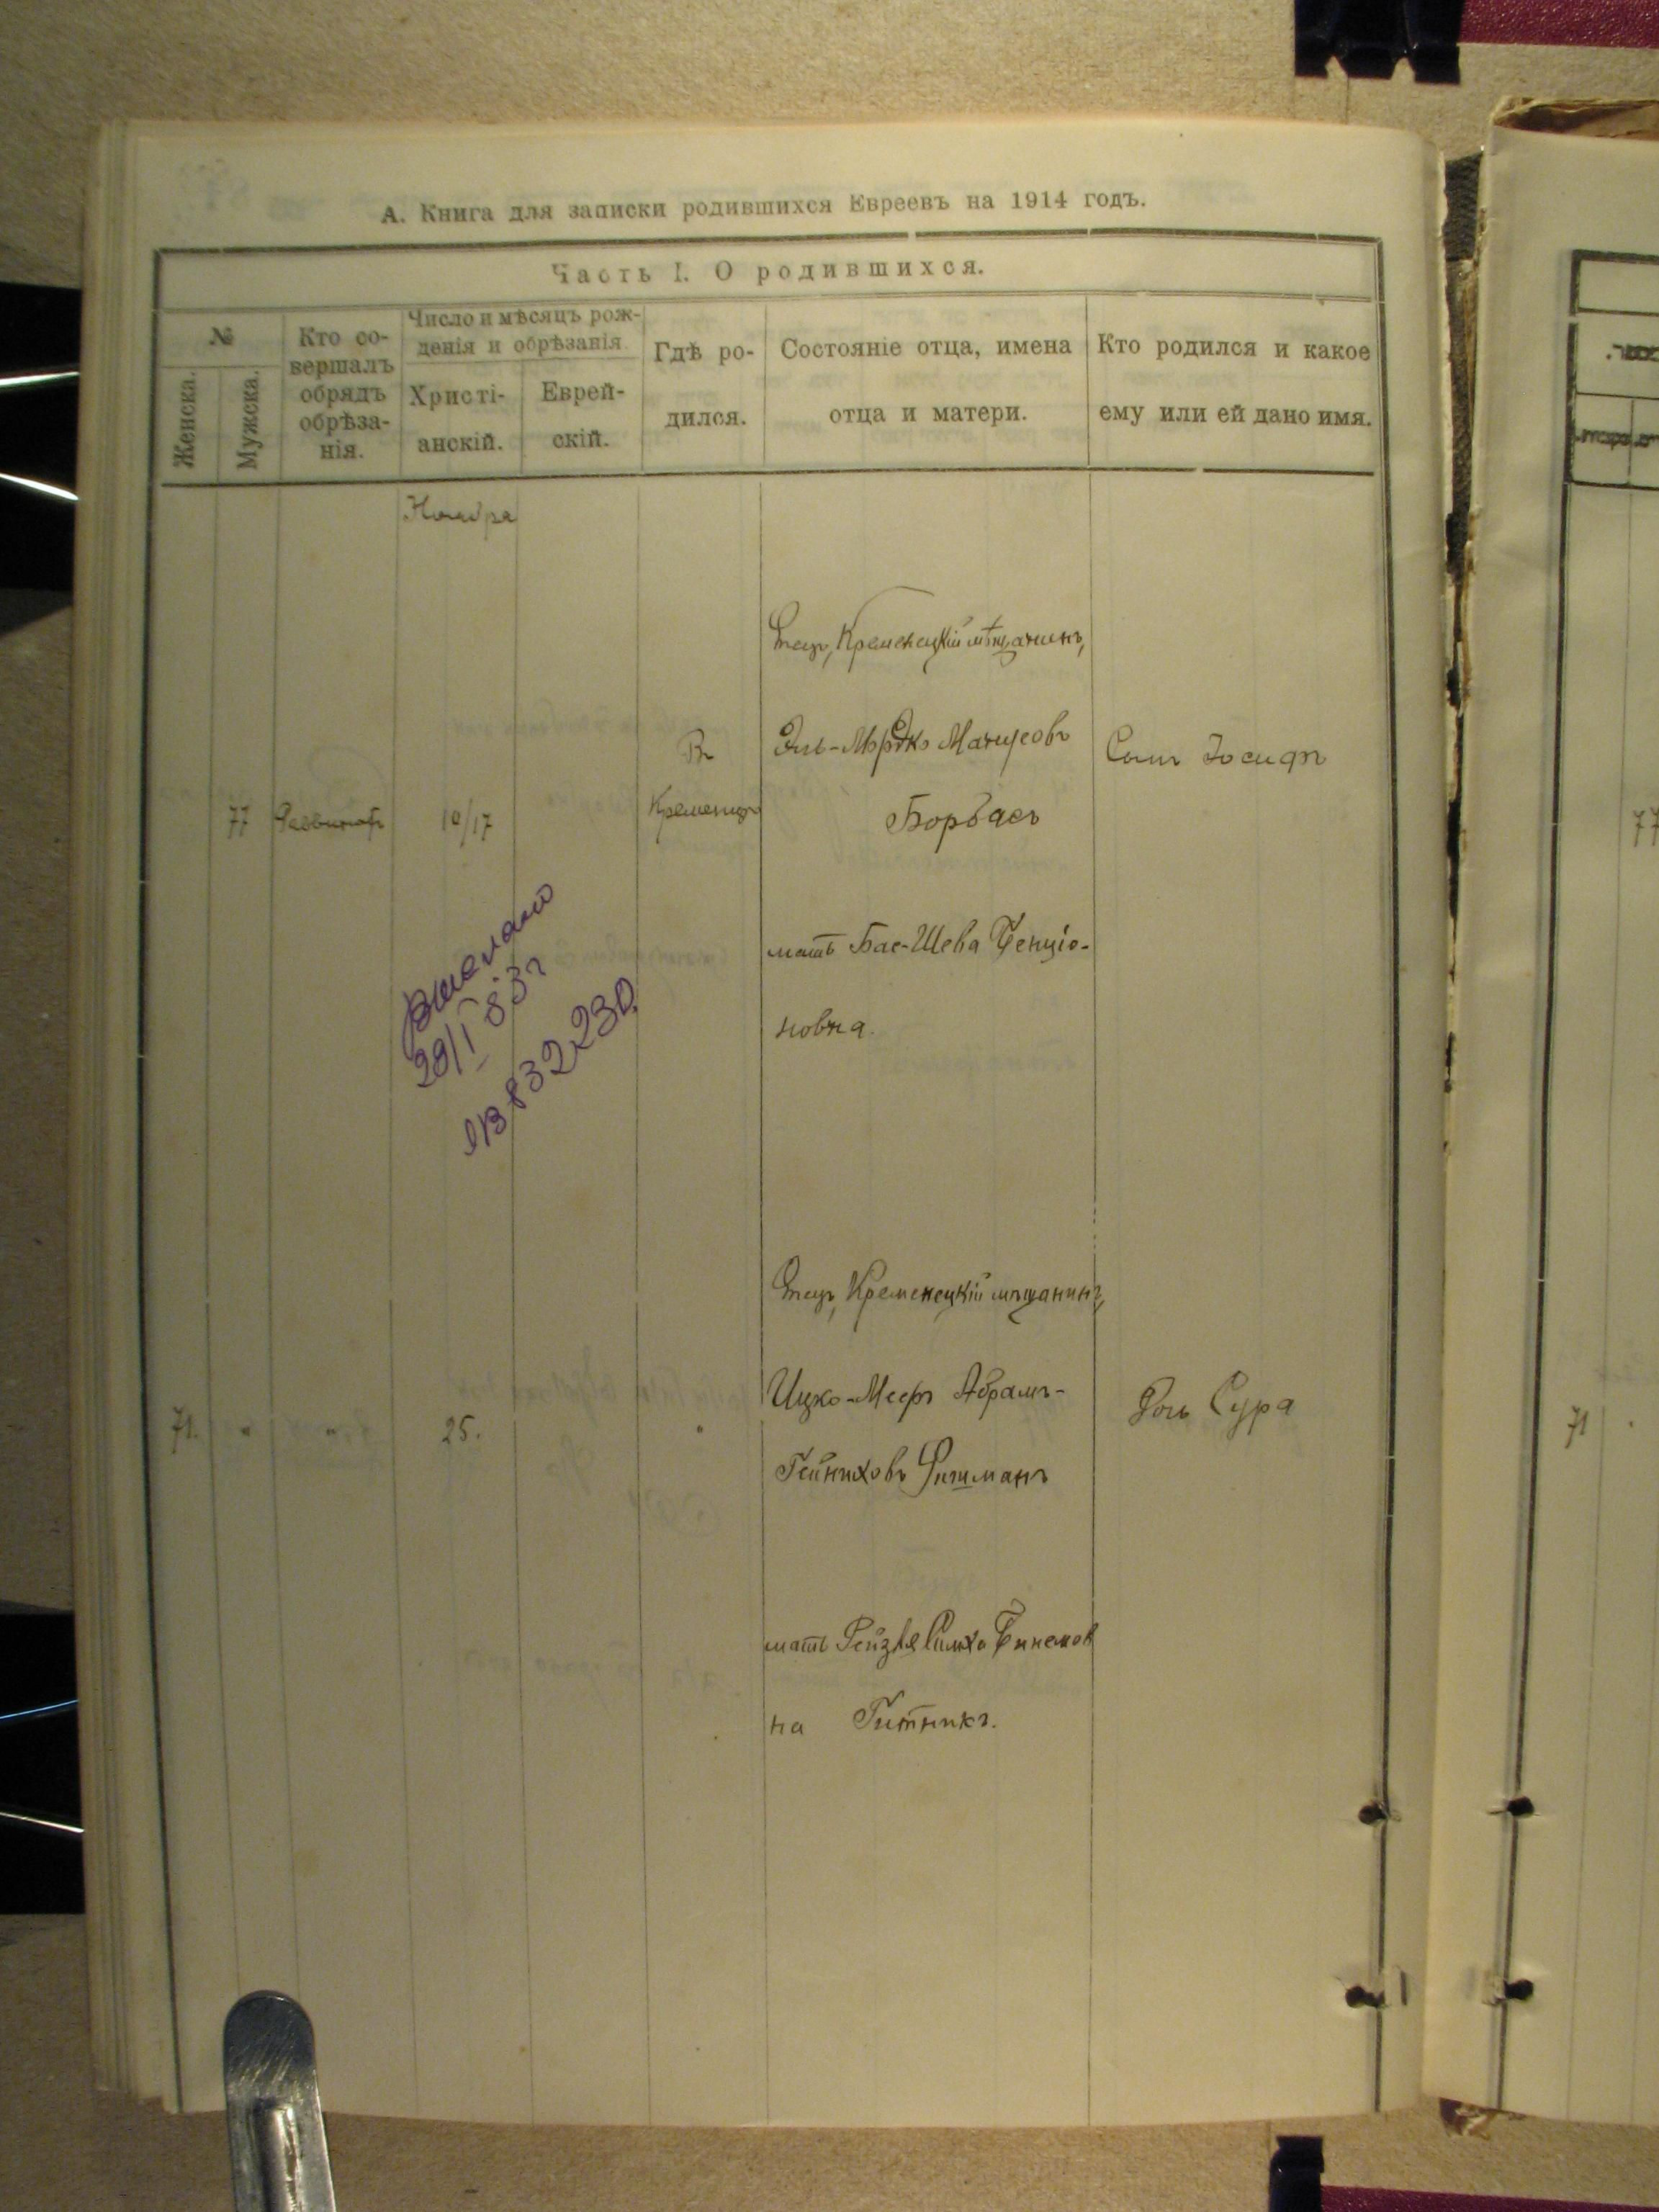 А. Книга для записки родившихся Евреевъ на 1914 годъ.
Часть I. О родившихся.
№
Женска.
Мужска.
Кто со-
вершалъ
обрядъ
обрѣза-
нія.
Число и мѣсяцъ рож-
денія и обрѣзанія.
Христі-
анскій.
Еврей-
скій.
Гдѣ ро-
дился.
Состояніе отца, имена
отца и матери.
Кто родился и какое
ему или ей дано имя.
Ноября
77
10/17
Въ
Кременцѣ
Отецъ, Кременецкій мѣщанинъ,
Борбасъ
мать Бас-Шева Бенціо-
новна.
Сынъ Іосифъ
выслано
29/I 83г
832230.
71.
"
"
25.
"
Отецъ, Кременецкій мѣщанинъ,
Ицко-Мееръ Абрамъ-
Гейниховъ Фишманъ
мать Рейзя Симха
на Гитникъ.
Дочь Сура
77
71